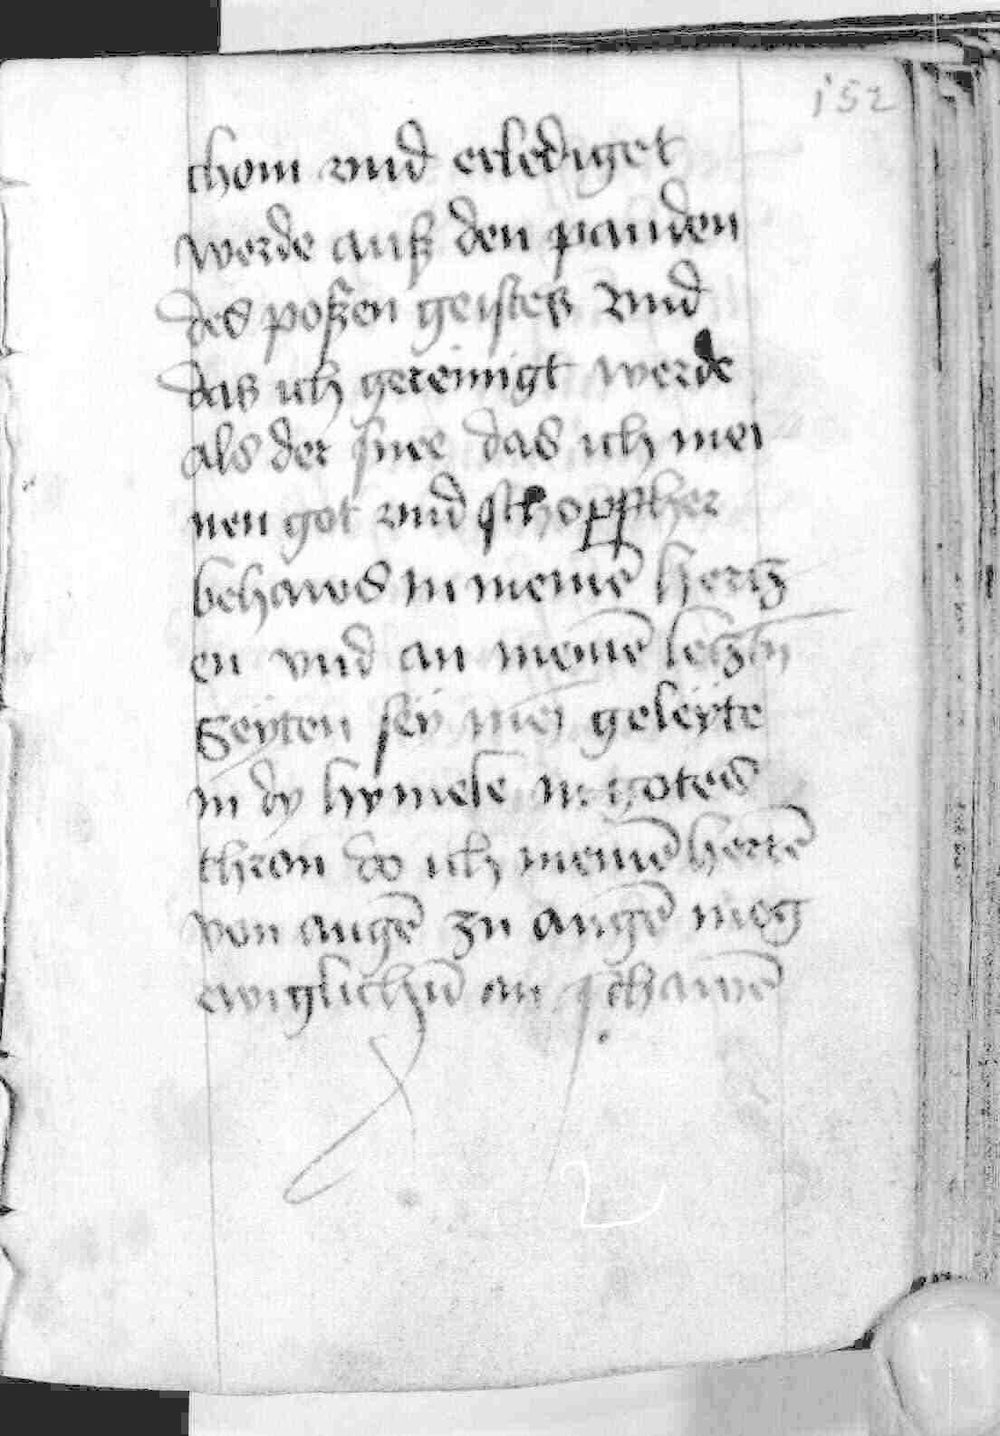 152
chom vnd erlediget
werde auß den panden
des poßen geistes vnd
das ich gereinigt werde
als der snee das ich mei
nen got vnd schoppher
behaws in meinē hertz
en vnd an meinē letztn
Zeÿten seÿ mei geleÿte
in dy hymele in gotes
thron do ich meinē herrē
von augē zu augē meg
ewiglichn̄ an schawē